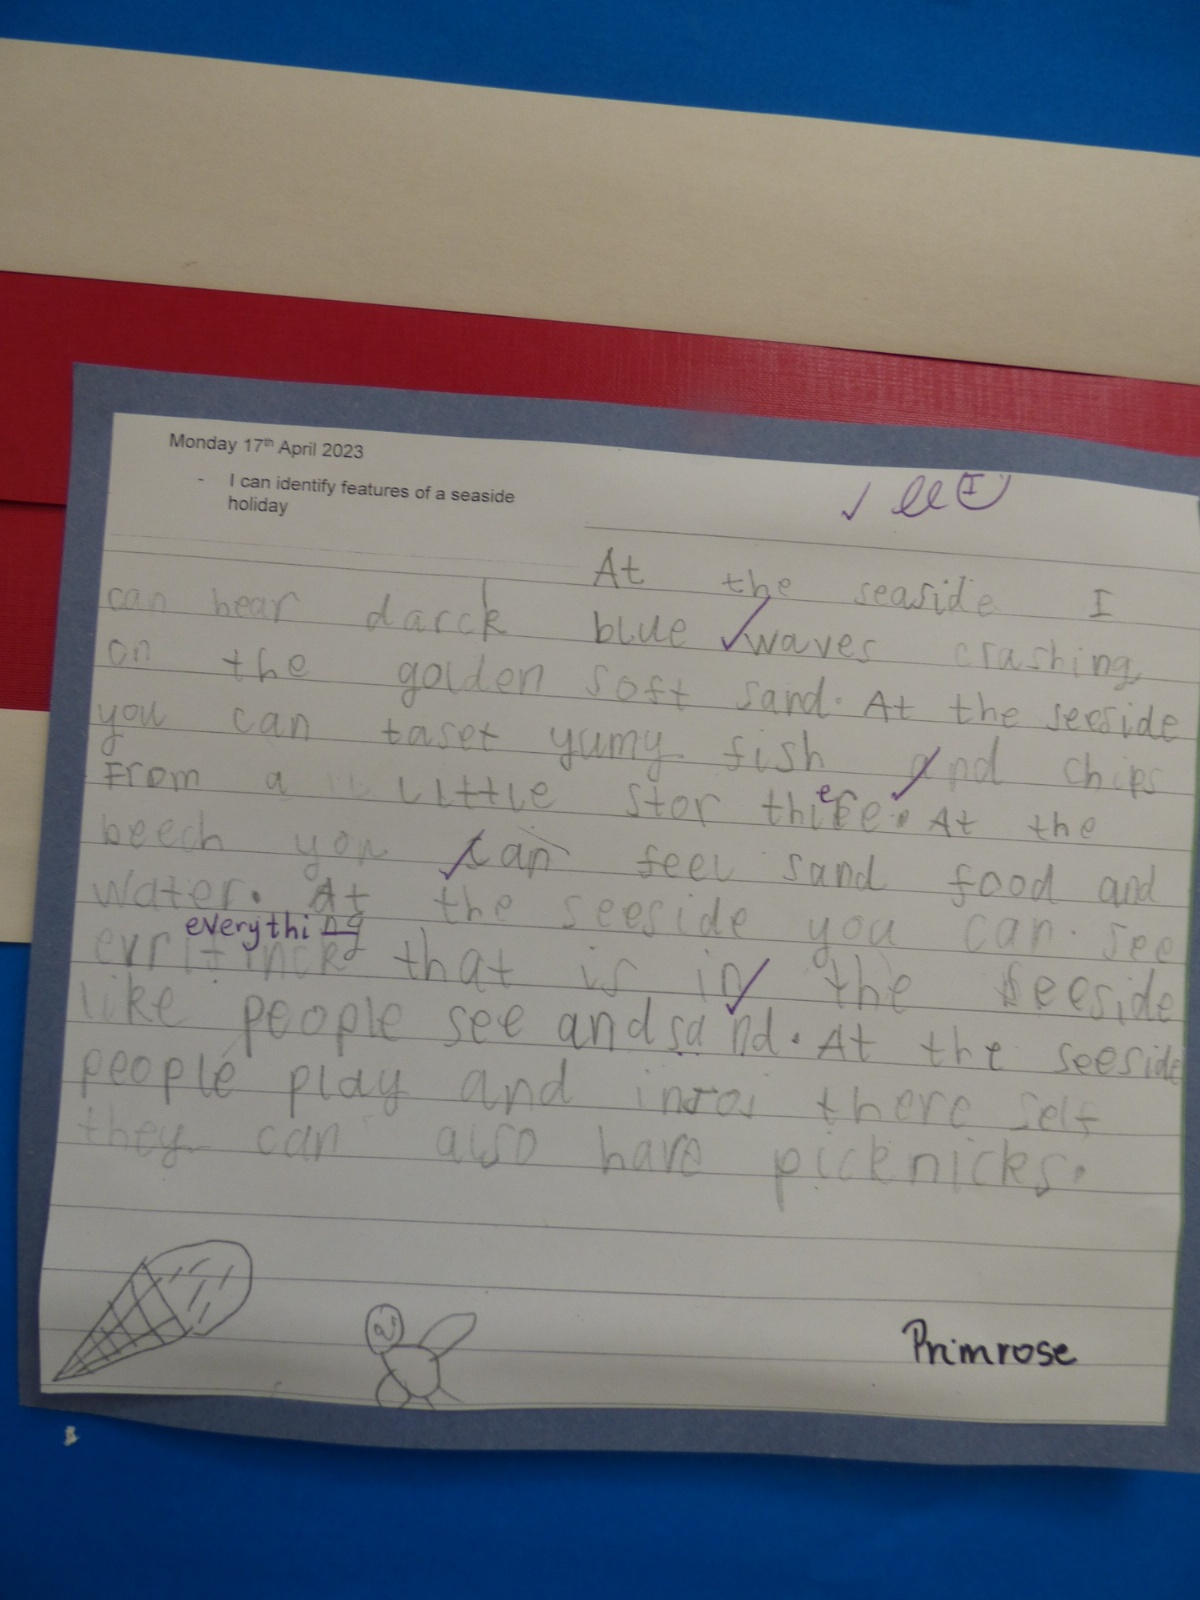 Monday 17th April 2023
- I can identify features of a seaside
holiday
At the seaside I
can hear darck blue waves crashing
on the golden soft sand. At the seeside
you can taset yumy fish and chips
From a little stor there. At the
beech you can feel sand food and
water. At the seeside you can see
everything
that is in the seeside
like people see and sand. At the seeside
people play and there self
they can also have picknicks.
Primrose